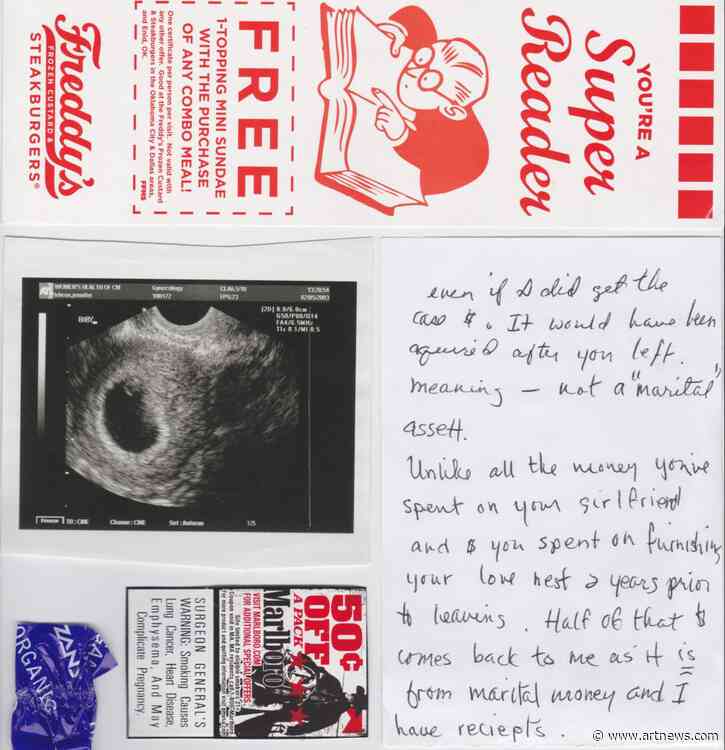 YOU'RE A
Super
Reader
FREE
1-TOPPING MINI SUNDAE
WITH THE PURCHASE
OF ANY COMBO MEAL!
One certificate per person per visit. Not valid with
any other offer. Good at the Freddy's Frozen Custard
& Steakburgers in the Oklahoma City & Dallas areas,
and Enid, OK.
FFHS
Freddy's
FROZEN CUSTARD &
STEAKBURGERS®
WOMEN'S HEALTH OF CNY
Gynecology
100172
13:28:54
02DEC2003
BABY
even if I did get the
case $. It would have been
aquired after you left.
meaning – not a "marital"
assett.
Unlike all the money you've
spent on your girlfriend
and $ you spent on furnishing
your love nest 2 years prior
to leaving Half of that $
comes back to me as it is
from marital money and I
have reciepts.
50¢
OFF
A PACK
VISIT MARLBORO.COM
FOR ADDITIONAL SPECIAL OFFERS.
Marlboro
SURGEON GENERAL'S
WARNING: Smoking Causes
Lung Cancer, Heart Disease,
Emphysema, And May
Complicate Pregnancy.
ZAND
ORGANIC
www.artnews.com